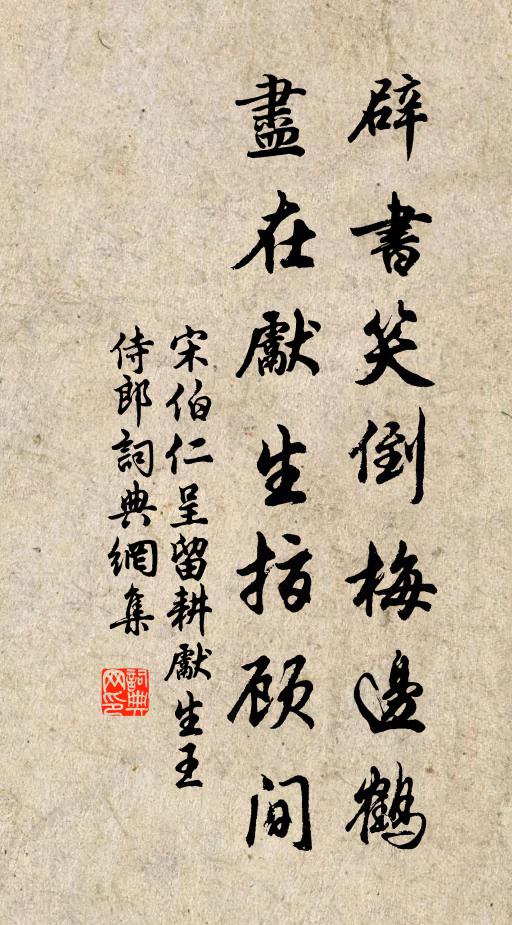 辟書笑倒梅邊鶴
盡在獻生指顾間
宋伯仁呈留耕獻生王
侍郎詞典網集
詞典网印